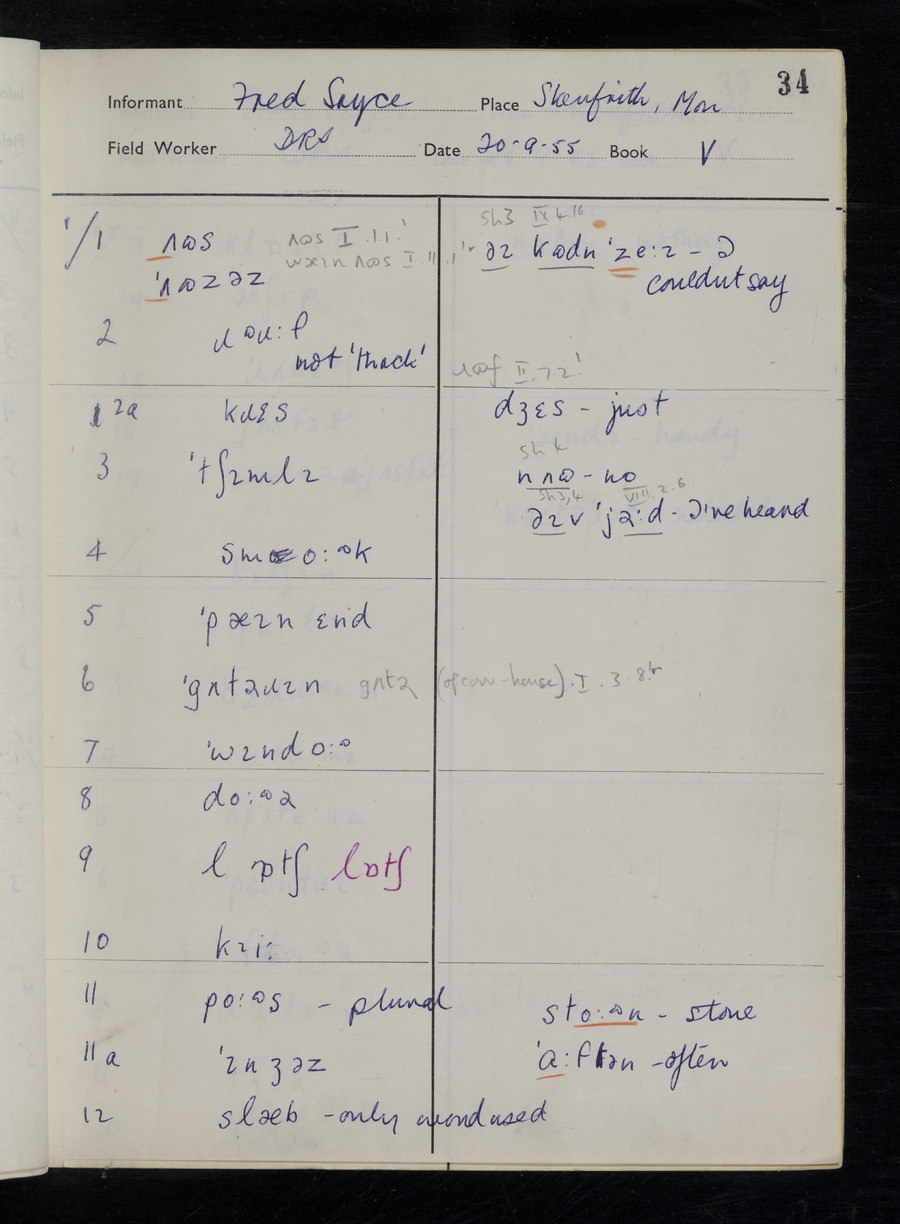 34
Informant Fred Sayce Place Skenfrith, Mon
Field Worker DRS Date 20-9-55 Book V
1/1 ʌɷs ʌɷs I.1.1.
ˈʌɷzəz wæɪn ʌɷs I.11.1
2 ɹɷu:f
not 'thack'
2a kɹɛs
3 ˈtʃɪmlɪ
4 smo:ɷk
5 ˈpæɪn ɛnd
6 ˈgʌtəɹɪn gʌtə (of cow-house) I.3.8
7 ˈwɪndo:ɷ
8 do:ɷə
9 lɒtʃ lɒtʃ
10 kɪi:
11 po:ɷs - plural
11a ˈɪnʒəz
12 slæb - only word used
sh3 IX.4.16
əɪ kɷdn ˈze:ɪ - I
couldnt say
ɹɷf II.7.2
dʒɛs - just
sh4
nʌɷ - no
sh3,4 VIII.2.6
əɪv ˈjə:d - I've heard
sto:ɷn - stone
ˈɑ:ftən - often